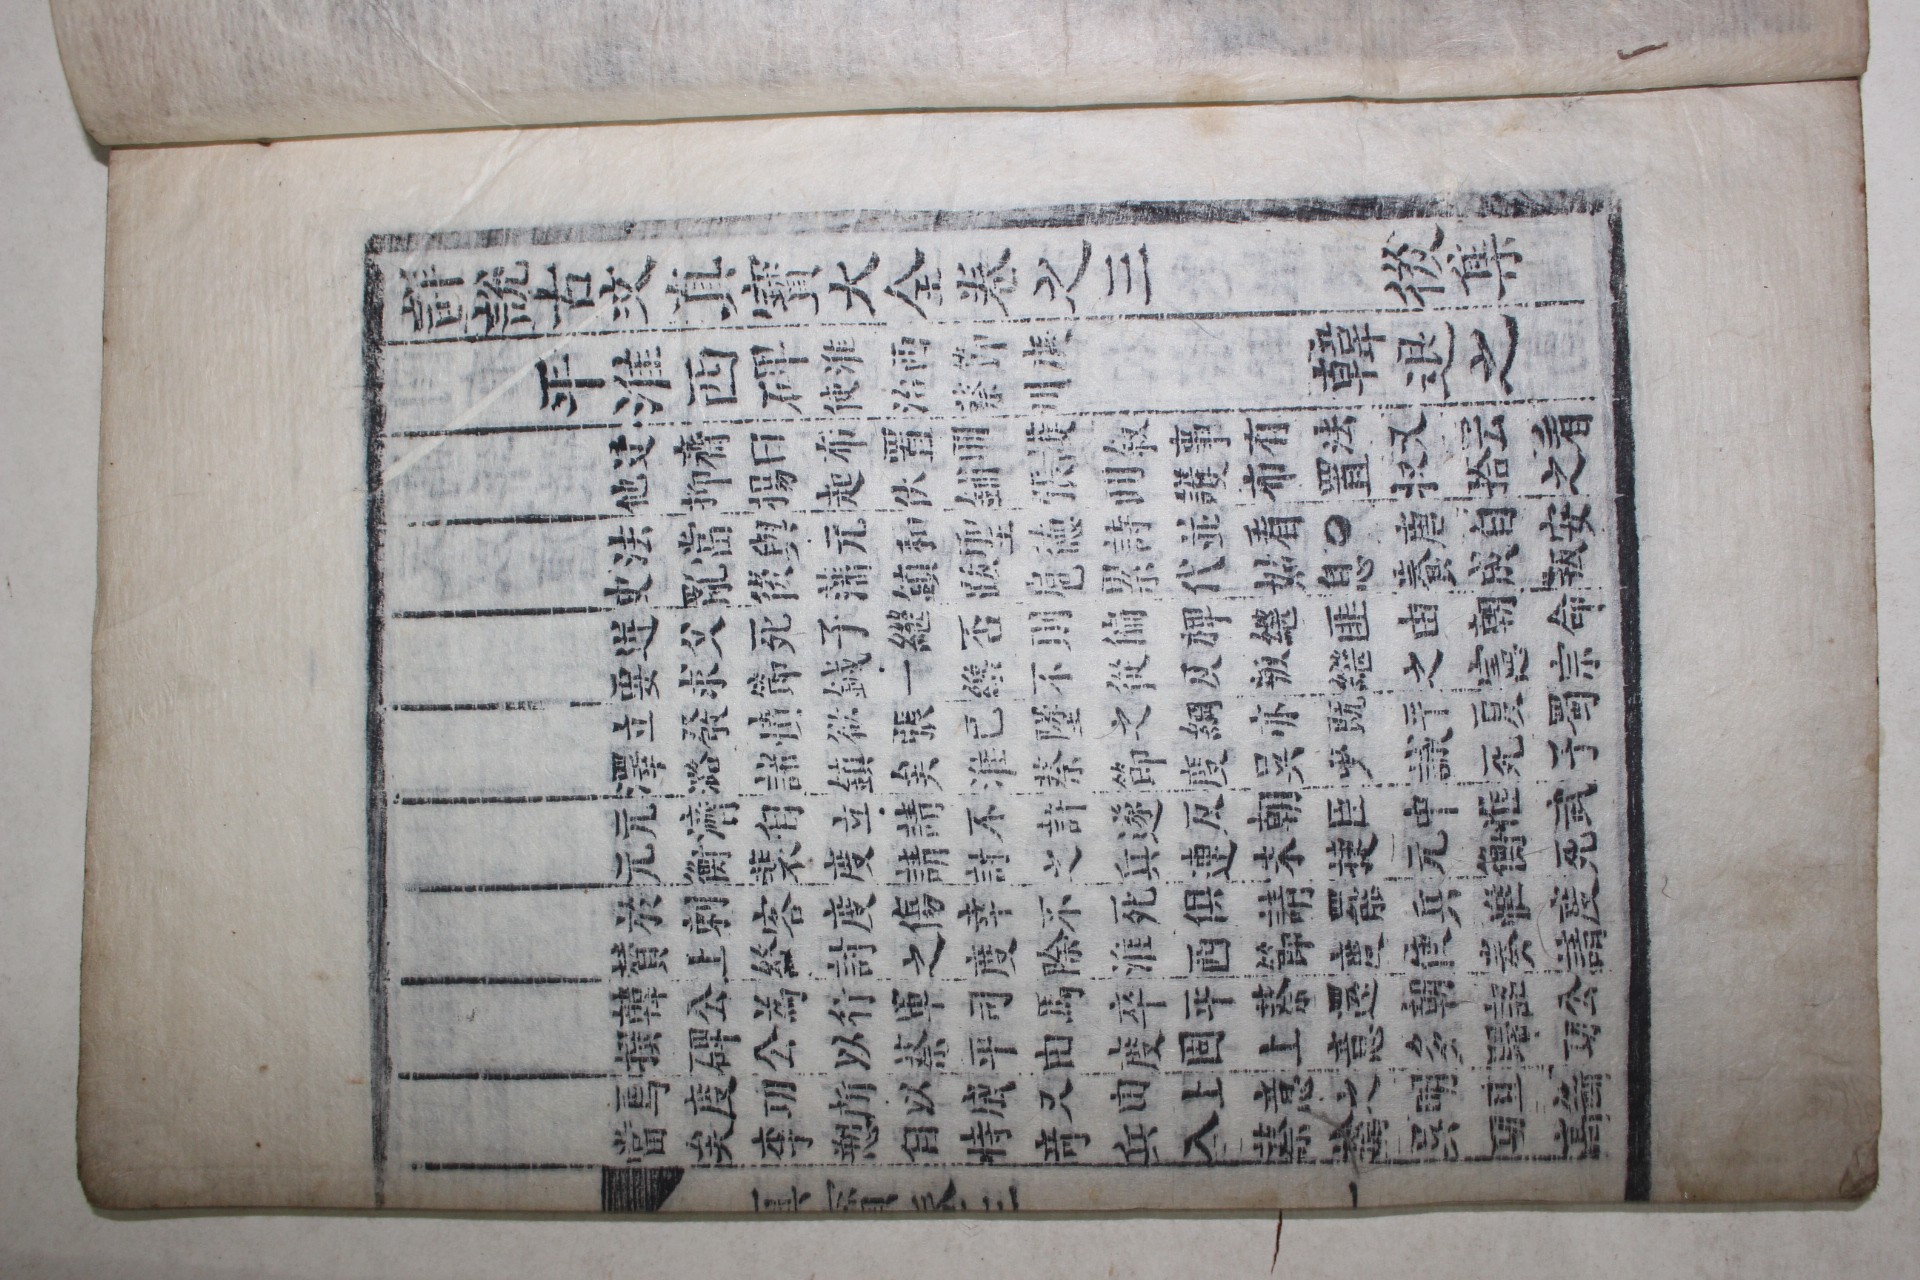 詳說古文真寶大全卷之三　後集
平淮西碑
淮西節度
使治蔡州
韓退之
迂齊曰布置開護敘事有法又云看
他抑揚起伏鋪張開護布置收拾之
法當與元和聖德詩並看○唐自安
史亂後藩鎮跋扈累代姑息養成叛
逆父死子繼否則偏裨繼匪由朝命
要求節鉞一繼不從及叛繼之憲宗
立發憤欲張已墜之綱亦既平夏蜀
澤潞諸鎮矣淮蔡節度吳少誠死子
元濟自立請不許遂反朝臣中惟武
元衡裴度請討之兵連未捷元衡死
於刺客度傷幸不死俱請罷兵惟度
贊上終討之度除淮西節度使奏請
韓公為行軍司馬卒平蔡還朝詔公
撰碑公以蔡平由度固上意多歸功
焉度功所以成又由上意之明且
當矣李愬自恃奇兵入蔡擒吳功高
真寶卷三
一